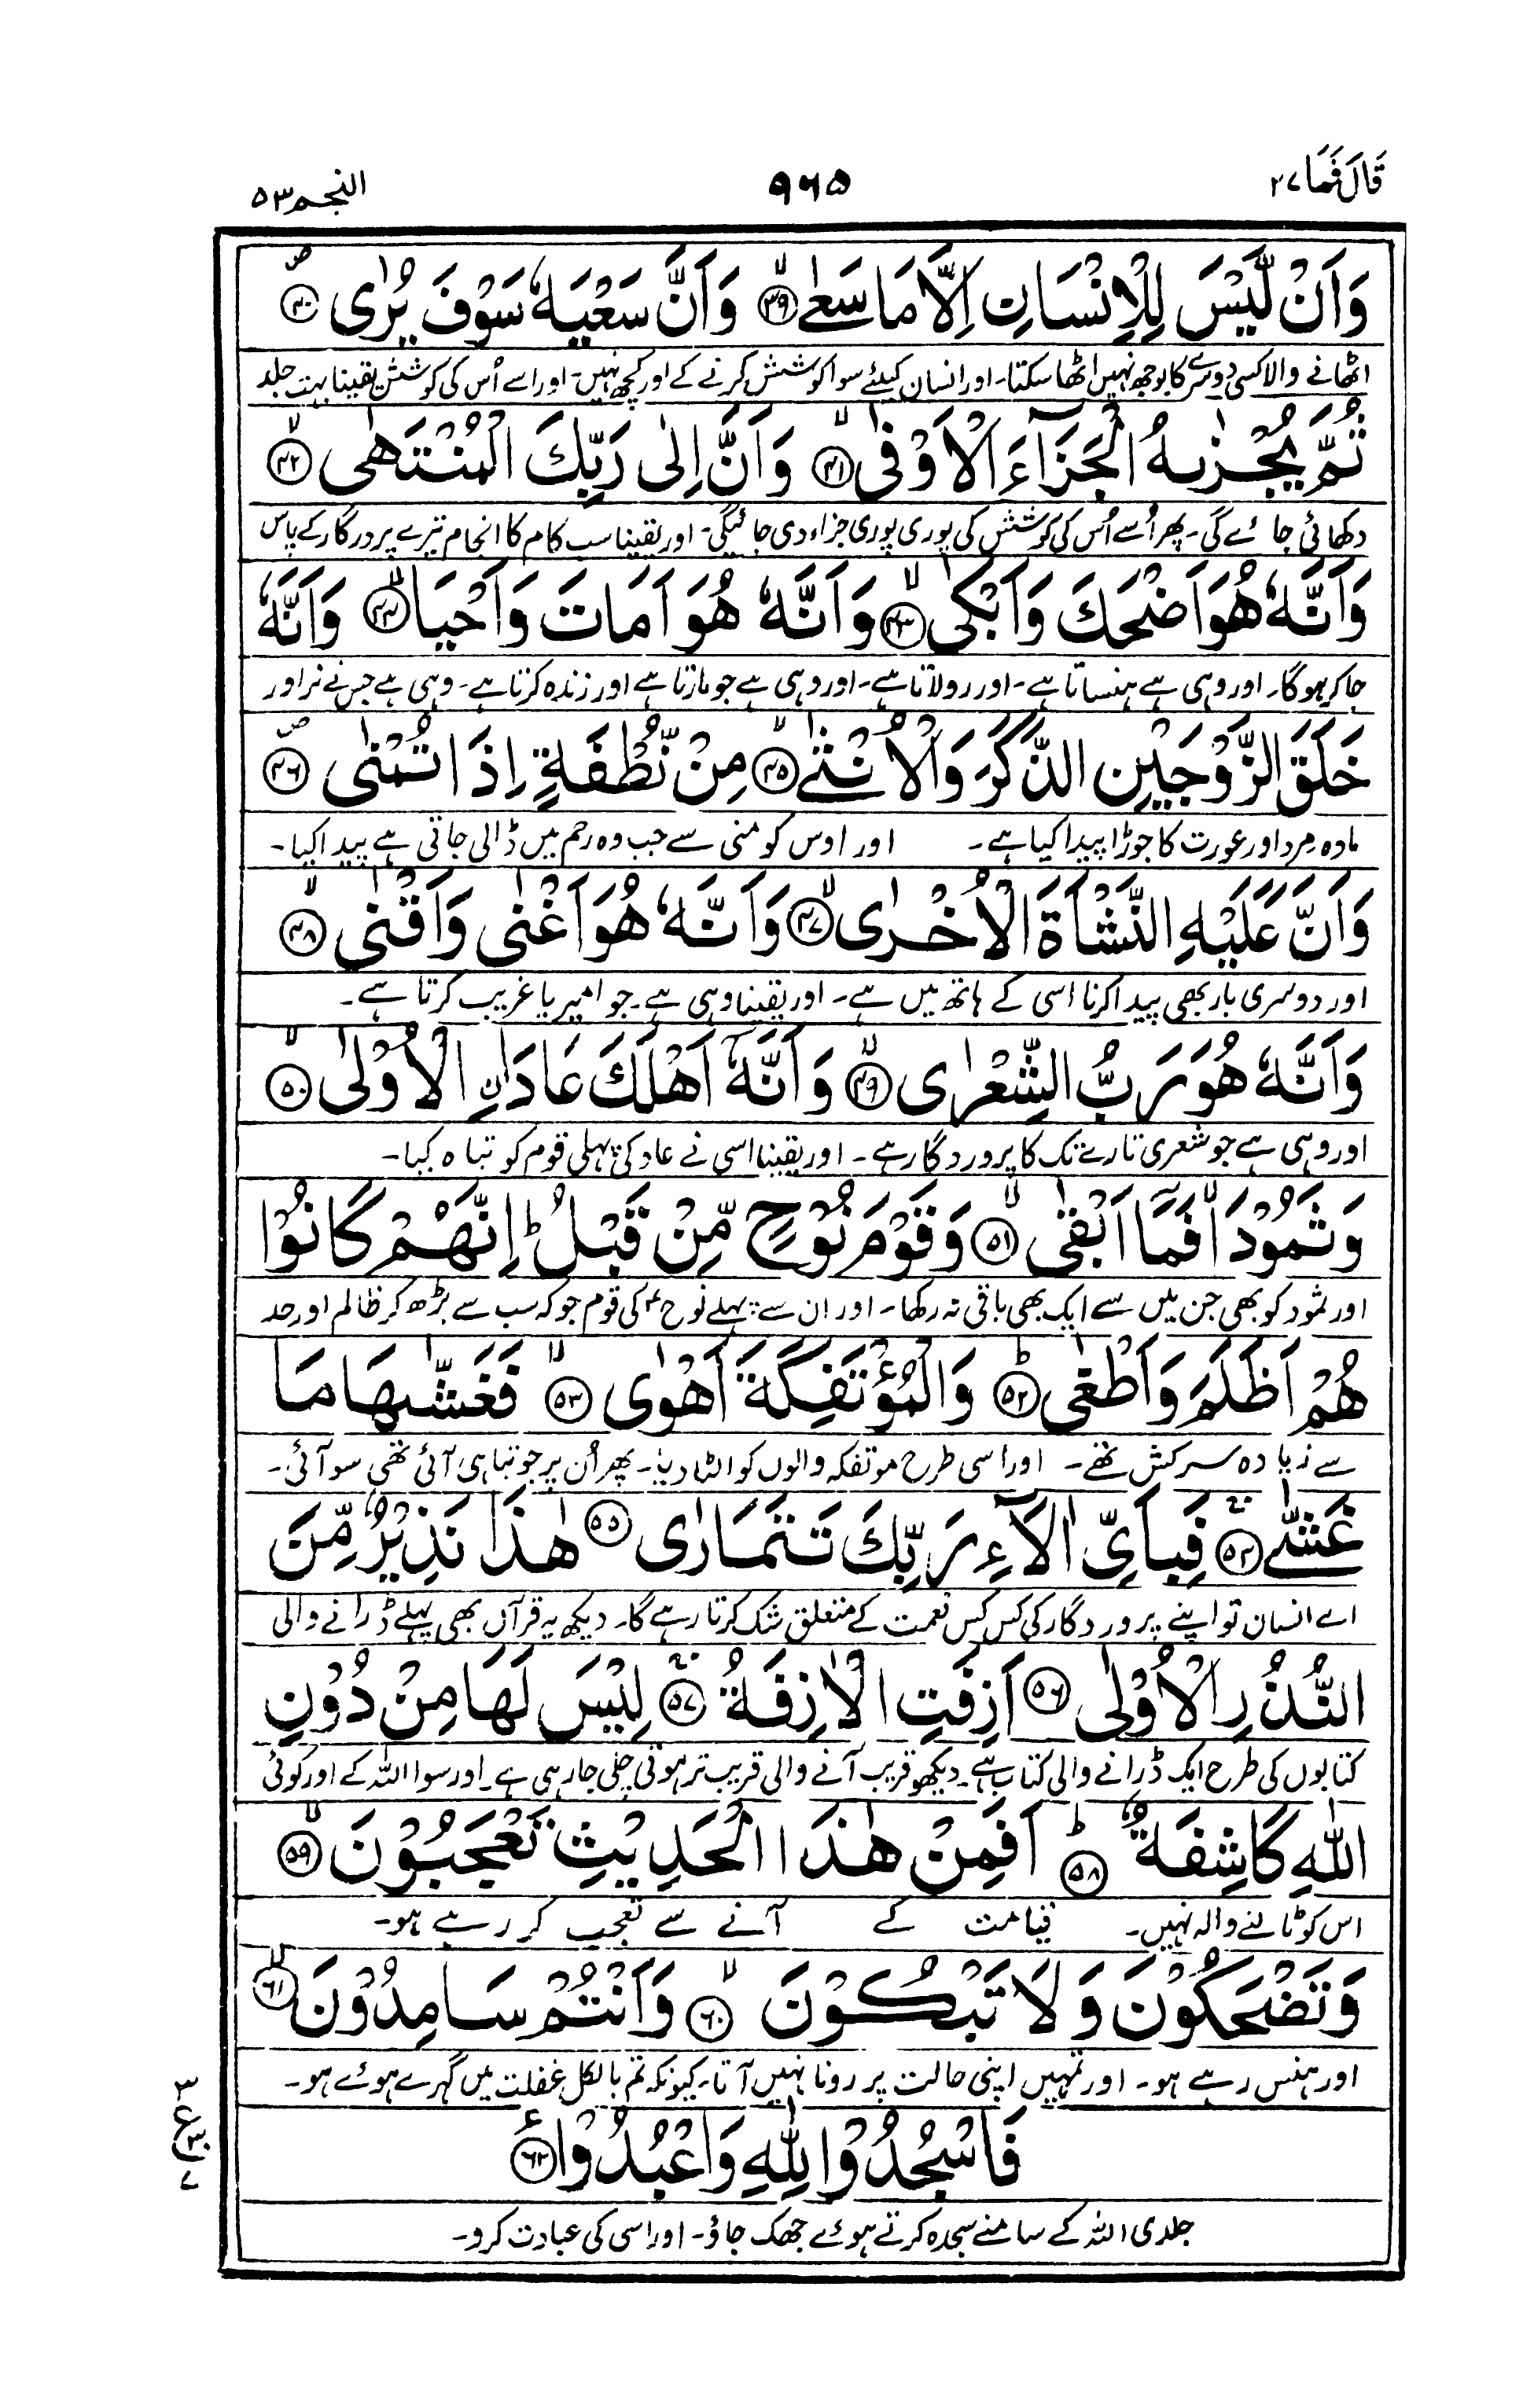 قَالَ فَمَا ٢٧
٩٦٥
النجم ٥٣
وَاَنْ لَّيْسَ لِلْاِنْسَانِ اِلَّا مَا سَعٰى ﴿٣٩﴾ وَاَنَّ سَعْيَهٗ سَوْفَ يُرٰى ﴿٤٠﴾
اٹھانے والا کسی دوسرے کا بوجھ نہیں اٹھا سکتا۔ اور انسان کیلئے سوا کوشش کرنے کے اور کچھ نہیں۔ اور اسے اُس کی کوشش یقینا بہت جلد
ثُمَّ يُجْزٰىهُ الْجَزَآءَ الْاَوْفٰى ﴿٤١﴾ وَاَنَّ اِلٰى رَبِّكَ الْمُنْتَهٰى ﴿٤٢﴾
دکھائی جائے گی۔ پھر اُسے اُس کی کوشش کی پوری پوری جزاء دی جائیگی۔ اور یقینا سب کام کا انجام تیرے پردرگار کے پاس
وَاَنَّهٗ هُوَ اَضْحَكَ وَاَبْكٰى ﴿٤٣﴾ وَاَنَّهٗ هُوَ اَمَاتَ وَاَحْيَا ﴿٤٤﴾ وَاَنَّهٗ
جا کر ہوگا۔ اور وہی ہے ہنساتا ہے۔ اور رولاتا ہے۔ اور وہی ہے جو مارتا ہے اور زندہ کرتا ہے۔ وہی ہے جس نے نر اور
خَلَقَ الزَّوْجَيْنِ الذَّكَرَ وَالْاُنْثٰى ﴿٤٥﴾ مِنْ نُّطْفَةٍ اِذَا تُمْنٰى ﴿٤٦﴾
مادہ مرد اور عورت کا جوڑا پیدا کیا ہے۔ اور اوس کو منی سے جب وہ رحم میں ڈالی جاتی ہے پیدا کیا۔
وَاَنَّ عَلَيْهِ النَّشْاَةَ الْاُخْرٰى ﴿٤٧﴾ وَاَنَّهٗ هُوَ اَغْنٰى وَاَقْنٰى ﴿٤٨﴾
اور دوسری بار بھی پیدا کرنا اسی کے ہاتھ میں ہے۔ اور یقینا وہی ہے۔ جو امیر یا غریب کرتا ہے۔
وَاَنَّهٗ هُوَ رَبُّ الشِّعْرٰى ﴿٤٩﴾ وَاَنَّهٗٓ اَهْلَكَ عَادَاۨ الْاُوْلٰى ﴿٥٠﴾
اور وہی ہے جو شعری تارے تک کا پرورد گار ہے۔ اور یقینا اسی نے عاد کی پہلی قوم کو تباہ کیا۔
وَثَمُوْدَا۟ فَمَآ اَبْقٰى ﴿٥١﴾ وَقَوْمَ نُوْحٍ مِّنْ قَبْلُ ؕ اِنَّهُمْ كَانُوْا
اور ثمود کو بھی جن میں سے ایک بھی باقی نہ رکھا۔ اور ان سے پہلے نوحؑ کی قوم جو کہ سب سے بڑھ کر ظالم اور حد
هُمْ اَظْلَمَ وَاَطْغٰى ﴿٥٢﴾ وَالْمُؤْتَفِكَةَ اَهْوٰى ﴿٥٣﴾ فَغَشّٰىهَا مَا
سے زیادہ سرکش تھے۔ اور اسی طرح موتفکہ والوں کو الٹا دیا۔ پھر اُن پر جو تباہی آئی تھی سو آئی۔
غَشّٰى ﴿٥٤﴾ فَبِاَيِّ اٰلَآءِ رَبِّكَ تَتَمَارٰى ﴿٥٥﴾ هٰذَا نَذِيْرٌ مِّنَ
اے انسان تو اپنے پروردگار کی کس کس نعمت کے متعلق شک کرتا رہے گا۔ دیکھ یہ قرآن بھی پہلے ڈرانے والی
النُّذُرِ الْاُوْلٰى ﴿٥٦﴾ اَزِفَتِ الْاٰزِفَةُ ﴿٥٧﴾ لَيْسَ لَهَا مِنْ دُوْنِ
کتابوں کی طرح ایک ڈرانے والی کتاب ہے۔ دیکھو قریب آنے والی قریب تر ہوتی چلی جا رہی ہے۔ اور سوا اللہ کے اور کوئی
اللّٰهِ كَاشِفَةٌ ﴿٥٨﴾ اَفَمِنْ هٰذَا الْحَدِيْثِ تَعْجَبُوْنَ ﴿٥٩﴾
اس کو ٹالنے والہ نہیں۔ قیامت کے آنے سے تعجب کر رہے ہو۔
وَتَضْحَكُوْنَ وَلَا تَبْكُوْنَ ﴿٦٠﴾ وَاَنْتُمْ سَامِدُوْنَ ﴿٦١﴾
اور ہنس رہے ہو۔ اور تمہیں اپنی حالت پر رونا نہیں آتا۔ کیونکہ تم بالکل غفلت میں گہرے ہوئے ہو۔
فَاسْجُدُوْا لِلّٰهِ وَاعْبُدُوْا ﴿٦٢﴾
جلدی اللہ کے سامنے سجدہ کرتے ہوئے جھک جاؤ۔ اور اسی کی عبادت کرو۔
٣
ع
٧